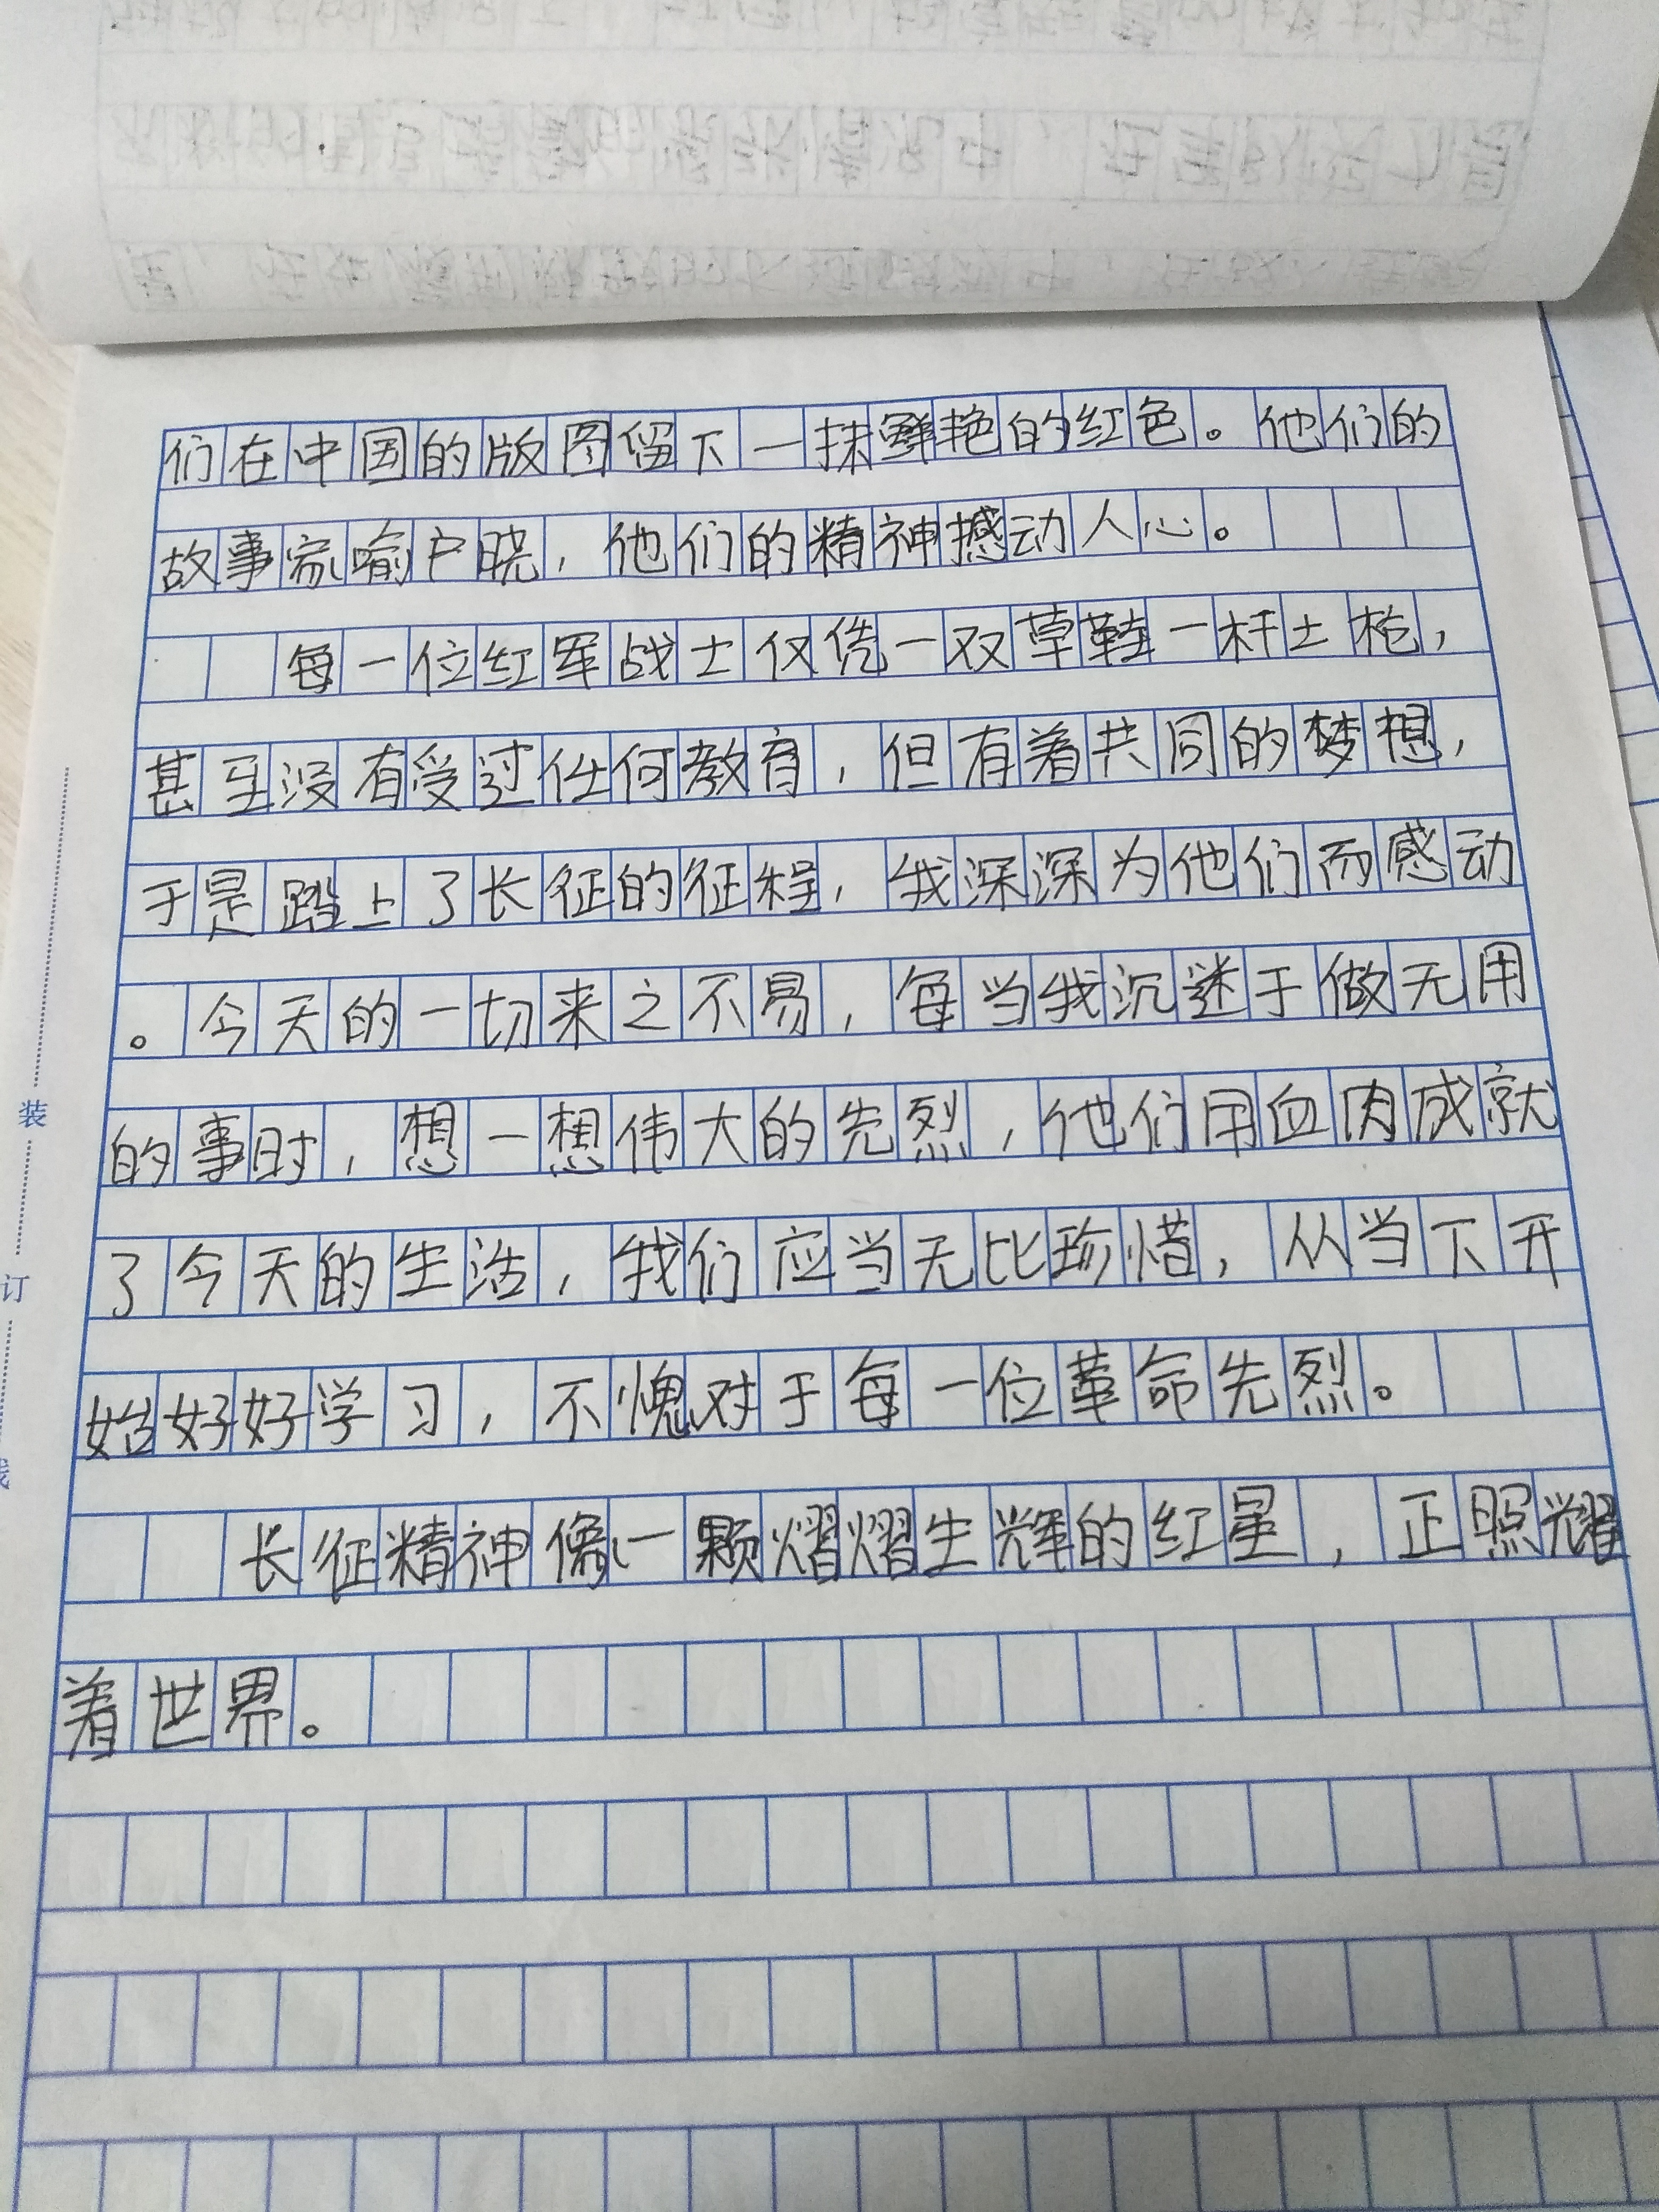 们在中国的版图留下一抹鲜艳的红色。他们的
故事家喻户晓，他们的精神撼动人心。
每一位红军战士仅凭一双草鞋一杆土枪，
甚至没有受过任何教育，但有着共同的梦想，
于是踏上了长征的征程，我深深为他们而感动
。今天的一切来之不易，每当我沉迷于做无用
的事时，想一想伟大的先烈，他们用血肉成就
了今天的生活，我们应当无比珍惜，从当下开
始好好学习，不愧对于每一位革命先烈。
长征精神像一颗熠熠生辉的红星，正照耀
着世界。
装
订
线